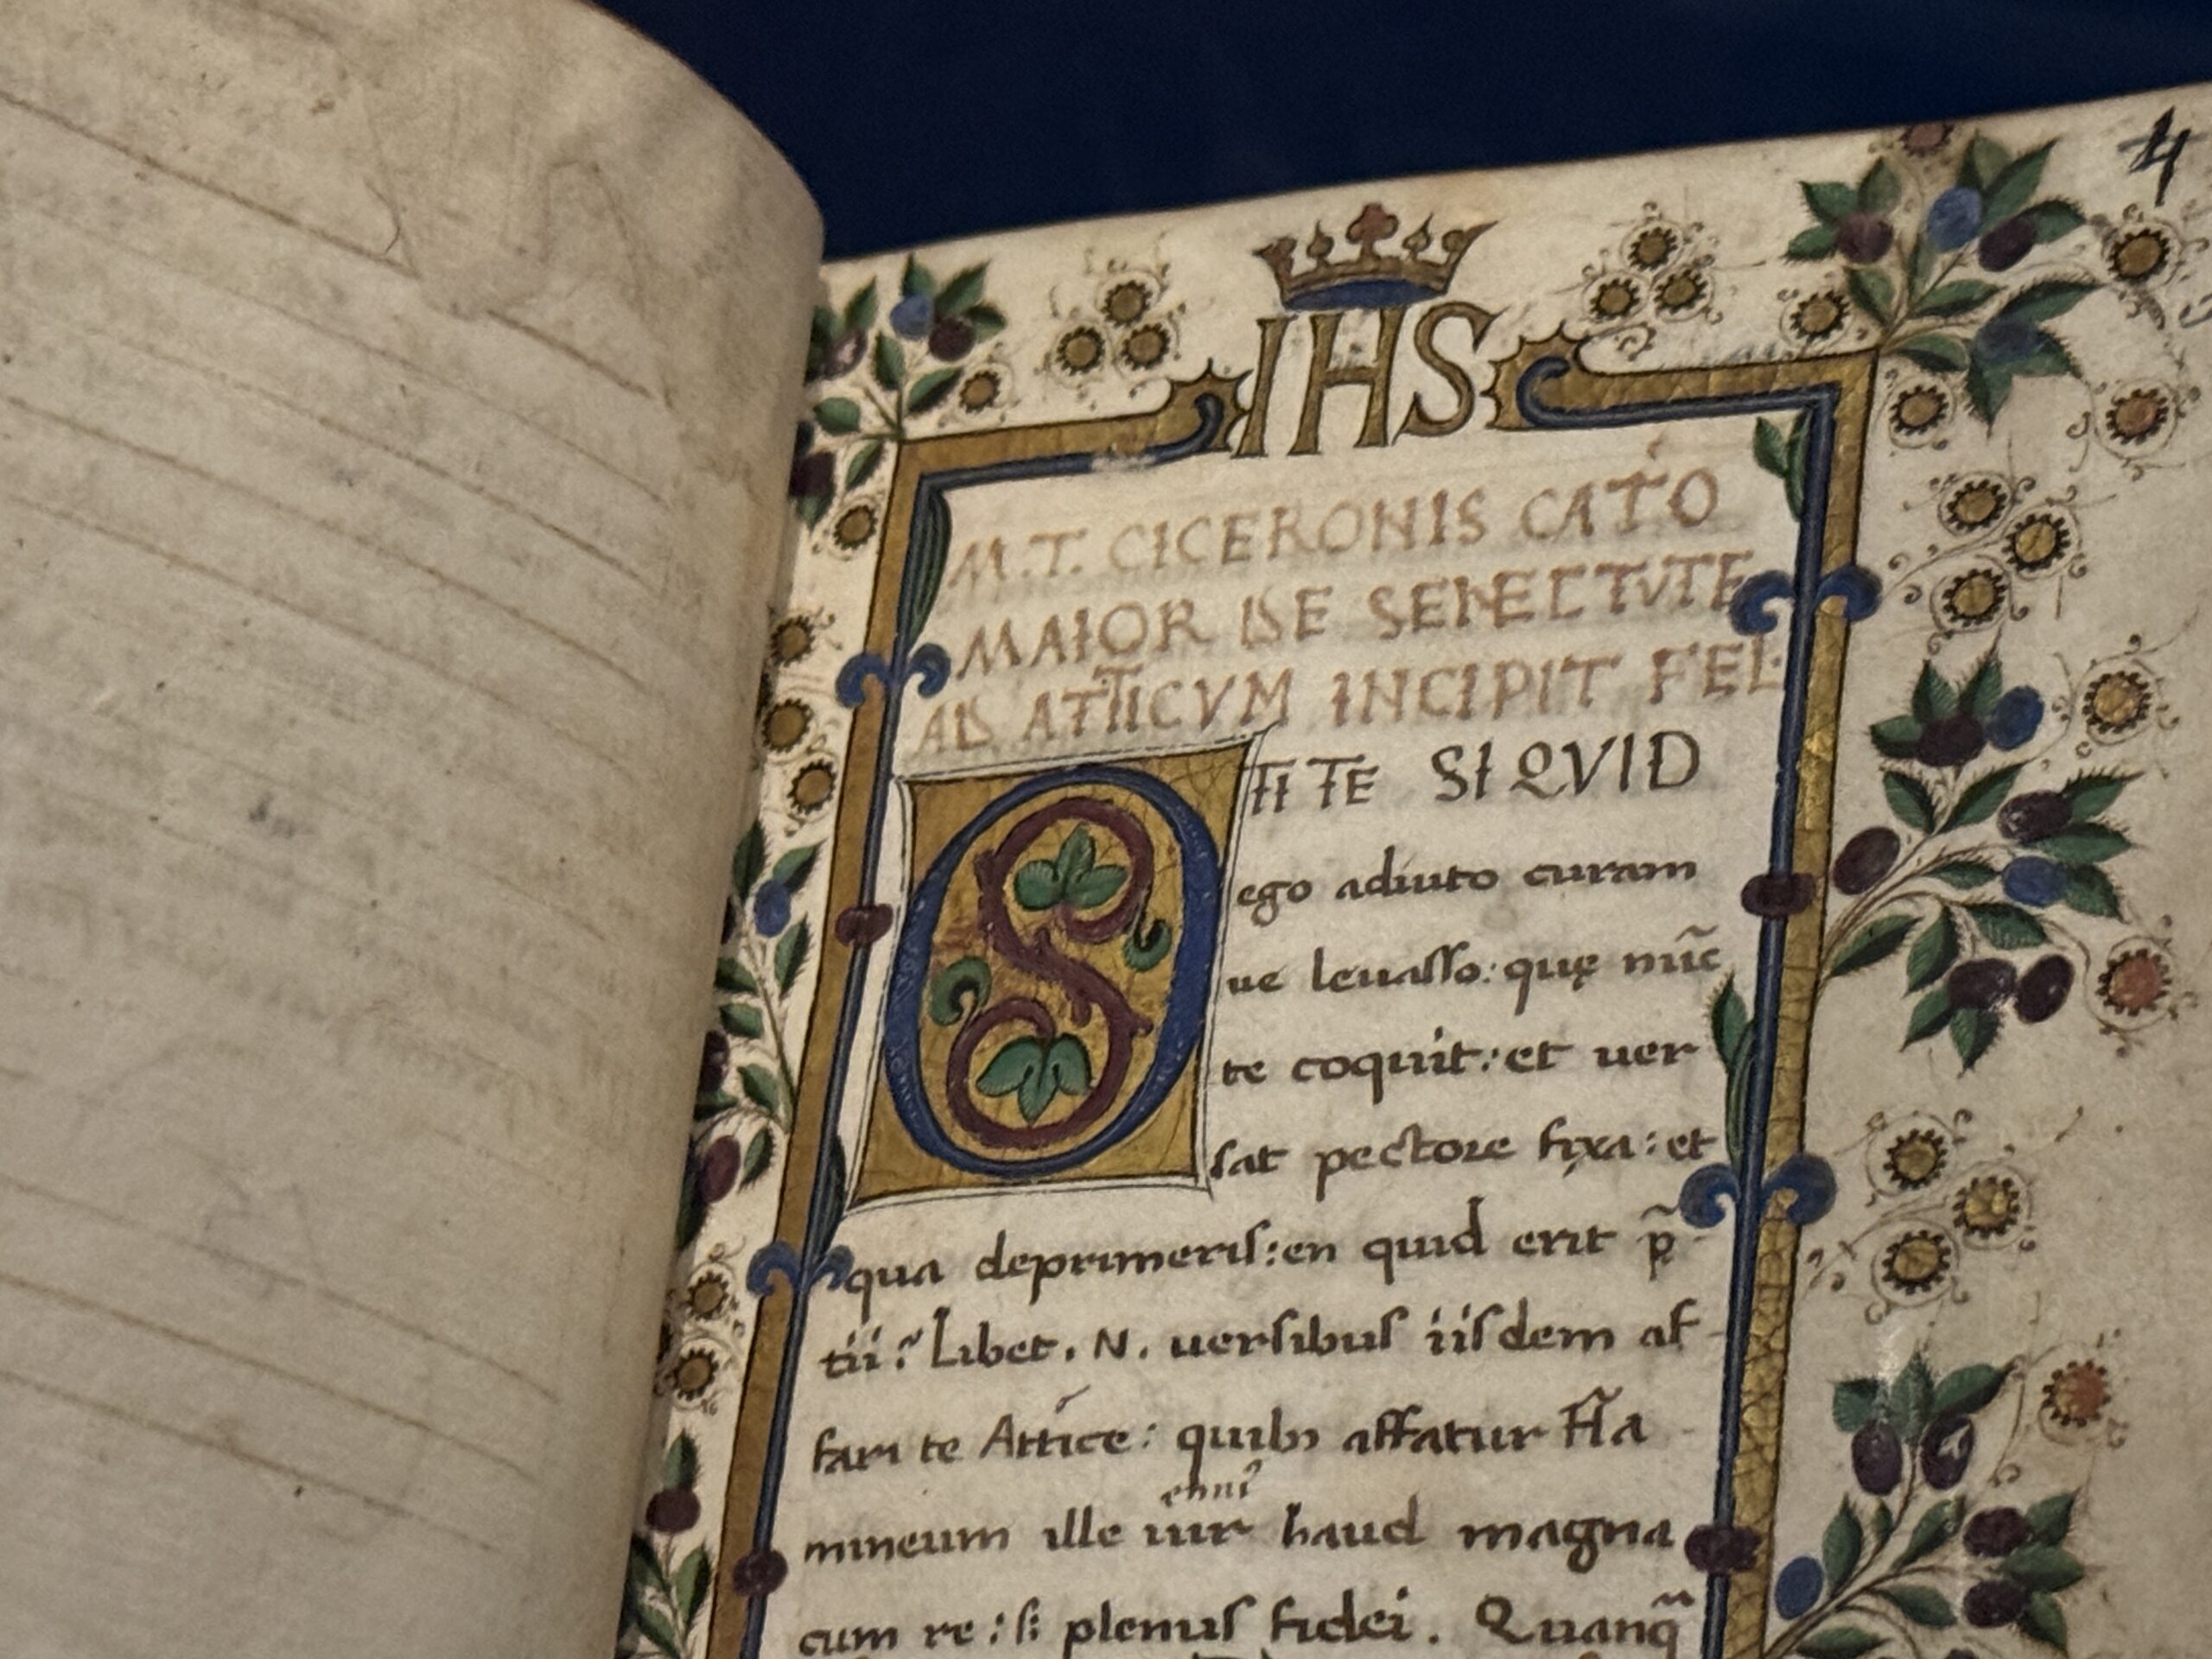 4
IHS
M.T. CICERONIS CATO
MAIOR DE SENECTVTE
AD ATTICVM INCIPIT FEL
OTITE SI QVID
ego adiuto curam
ue leuasso: quę nūc
te coquit: et uer
sat pectore fixa: et
qua deprimeris: en quid erit p̄
tii? Libet. N. uersibus iisdem af
fari te Attice: quibꝫ affatur Fla
enni
mineum ille uir haud magna
cum re: sꝫ plenus fidei. Quanq̃